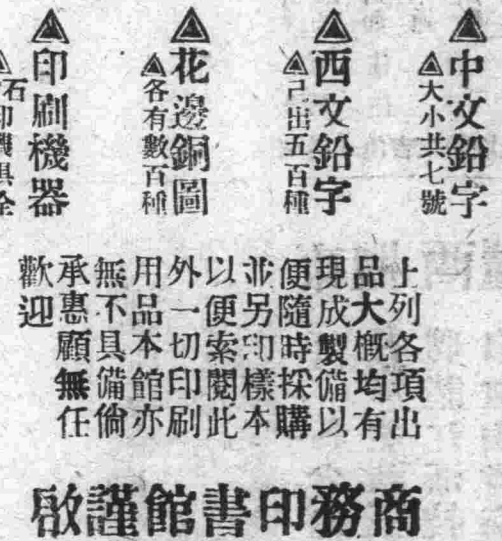 ▲中文鉛字
▲大小共七號
▲西文鉛字
▲已出五百種
▲花邊銅圖
▲各有數百種
▲印刷機器
石印機具全
上列各項出
品大概均有
現成製備以
便隨時採購
並另印樣本
以便索閱此
外一切印刷
用品本館亦
無不具備倘
承惠顧無任
歡迎
商務印書館謹啟